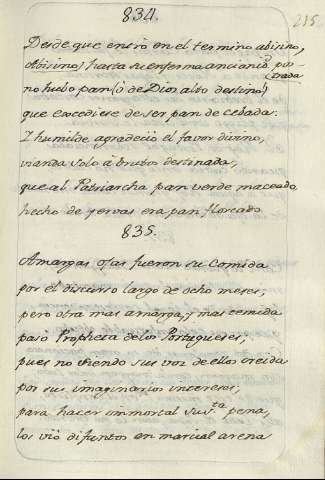 834.
215.
Desde que entró en el termino abisino,
Abisino) hasta su enferma ancianidad pos-
trada
no hubo pan (ó de Dios alto destino!)
que excediese de ser pan de cebada:
I humilde agradeció el favor divino,
vianda solo á brutos destinada,
que al Patriarcha pan verde maceado
hecho de yervas era pan floreado.
835.
Amargas ojas fueron su comida
por el discurso largo de ocho meses;
pero otra mas amarga, y mas temida
pasó Propheta de los Portugueses;
pues no siendo sus voz de ellos creida
por sus imaginarios intereses;
para hacer immortal su s.ta pena,
los vió difuntos en marcial arena